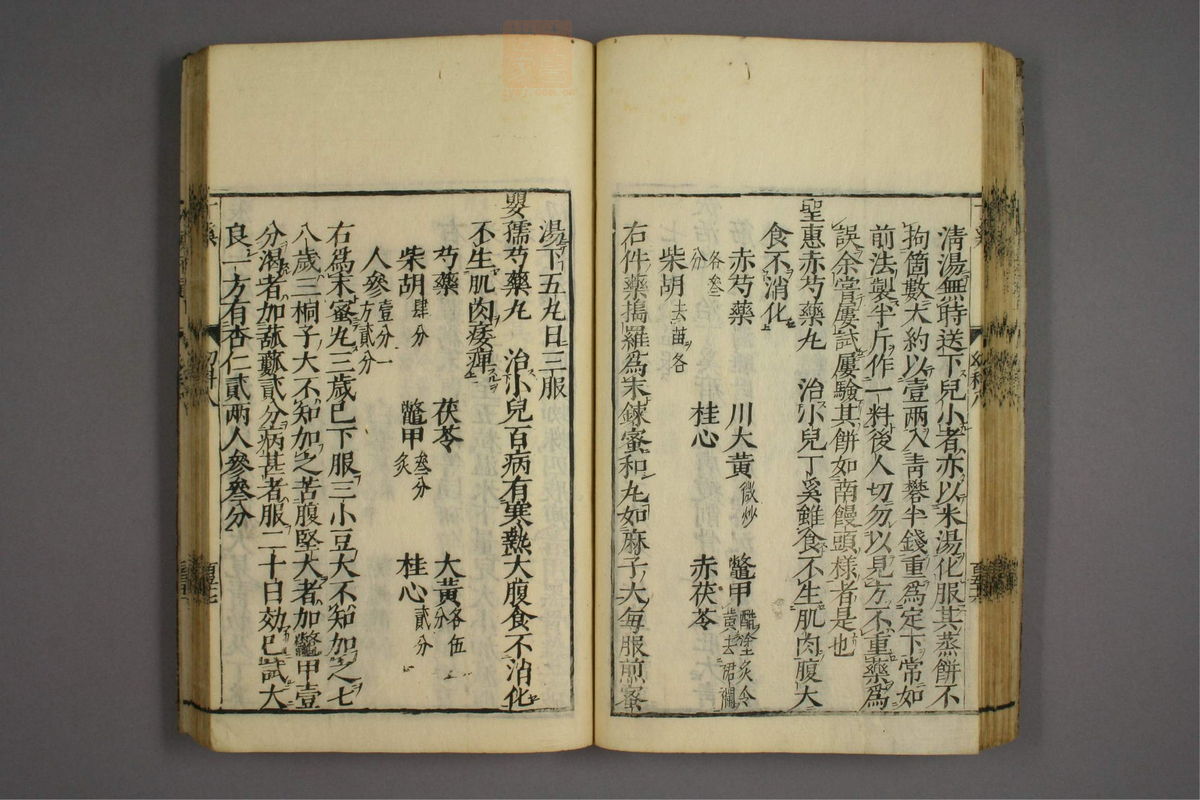 清湯無時送下兒小者亦以米湯化服其蒸餅不
拘箇數大約以壹兩入青礬半錢重為定下常如
前法製半斤作一料後人切勿以見方不重藥為
誤余嘗屢試屢驗其餅如南饅頭樣者是也
聖惠赤芍藥丸 治小兒丁奚雖食不生肌肉腹大
食不消化
赤芍藥 川大黃微炒 鼈甲醋塗炙令黃去裙襴
各叄分
柴胡去苗各 桂心 赤茯苓
右件藥搗羅為末鍊蜜和丸如麻子大每服煎蜜
湯下五丸日三服
嬰孺芍藥丸 治小兒百病有寒熱大腹食不消化
不生肌肉痿痺
芍藥 茯苓 大黃各伍分
柴胡肆分 鼈甲叄分炙 桂心貳分
人參壹分一方貳分
右為末蜜丸三歲已下服三小豆大不知加之七
八歲三桐子大不知加之苦腹堅大者加鼈甲壹
分渴者加栝蔞貳分病甚者服二十日効已試大
良一方有杏仁貳兩人參叄分